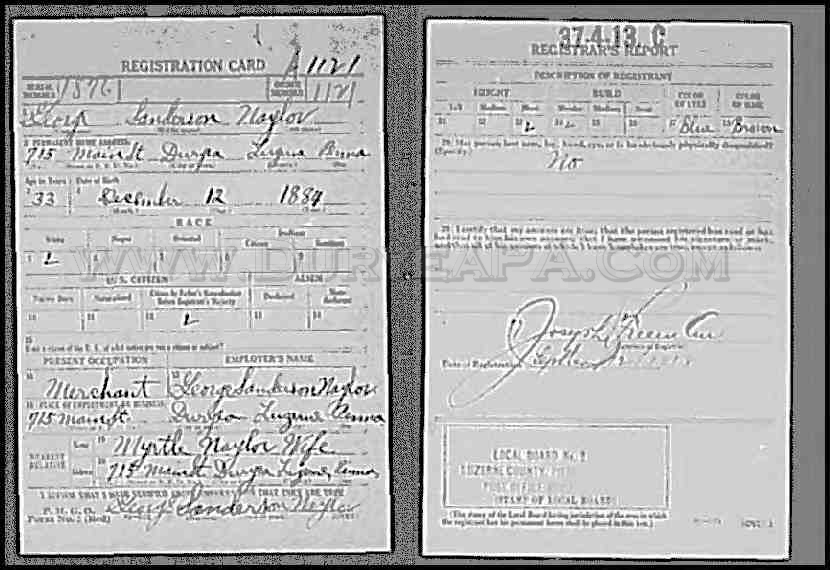 REGISTRATION CARD A1121
SERIAL NUMBER 1876 ORDER NUMBER 1121
George Sanderson Naylor
2 PERMANENT HOME ADDRESS:
715 Main St Duryea Luzerne Penna
Age in Years Date of Birth
33 December 12 1884
RACE
White Negro Oriental Indian
Citizen
U.S. CITIZEN ALIEN
Native Born Naturalized Citizen by Father's Naturalization Before Registrant's Majority Declarant Non-declarant
10 11 12 13 14
15
PRESENT OCCUPATION EMPLOYER'S NAME
Merchant George Sanderson Naylor
18 PLACE OF EMPLOYMENT OR BUSINESS:
715 Main St. Duryea Luzerne Penna
NEAREST RELATIVE
Name Myrtle Naylor Wife
Address 715 Main St Duryea Luzerne, Penna
I AFFIRM THAT I HAVE VERIFIED ABOVE ANSWERS AND THAT THEY ARE TRUE
P. M. G. O.
Form No. 1 (Red) George Sanderson Naylor
37-4-13. C
REGISTRAR'S REPORT
DESCRIPTION OF REGISTRANT
HEIGHT BUILD COLOR OF EYES COLOR OF HAIR
Tall Medium Short Slender Medium Stout
Blue Brown
29 Has person lost arm, leg, hand, eye, or is he obviously physically disqualified?
(Specify.)
No
30 I certify that my answers are true; that the person registered has read or has
had read to him his own answers; that I have witnessed his signature or mark,
and that all of his answers of which I have knowledge are true, except as follows:
Joseph
Date of Registration
LOCAL BOARD No. 2
LUZERNE COUNTY
POST OFFICE
(STAMP OF LOCAL BOARD)
(The stamp of the Local Board having jurisdiction of the area in which
the registrant has his permanent home shall be placed in this box.)
WWW.DURYEAPA.COM